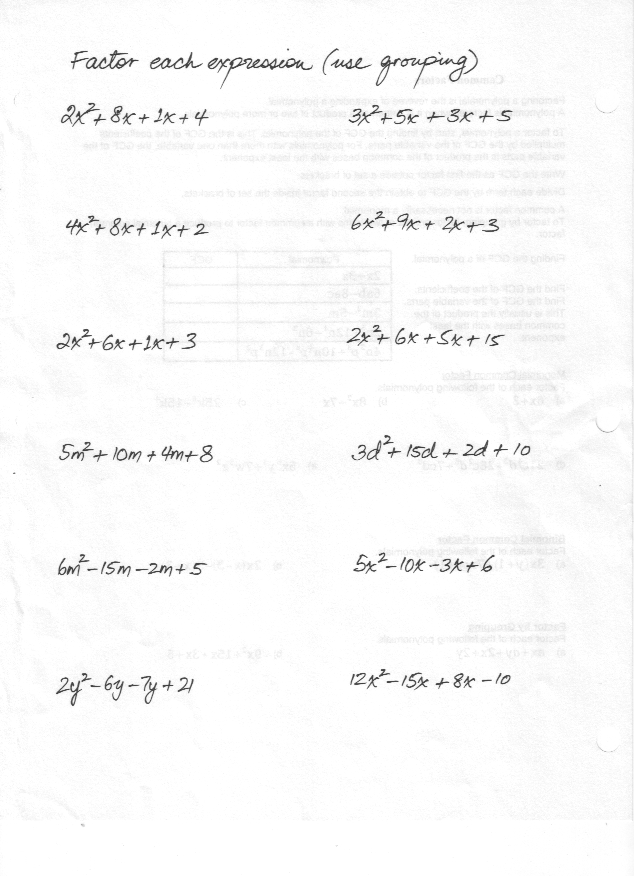 Factor each expression (use grouping)
2x²+8x+1x+4 3x²+5x+3x+5
4x²+8x+1x+2 6x²+9x+2x+3
2x²+6x+1x+3 2x²+6x+5x+15
5m²+10m+4m+8 3d²+15d+2d+10
6m²-15m-2m+5 5x²-10x-3x+6
2y²-6y-7y+21 12x²-15x+8x-10